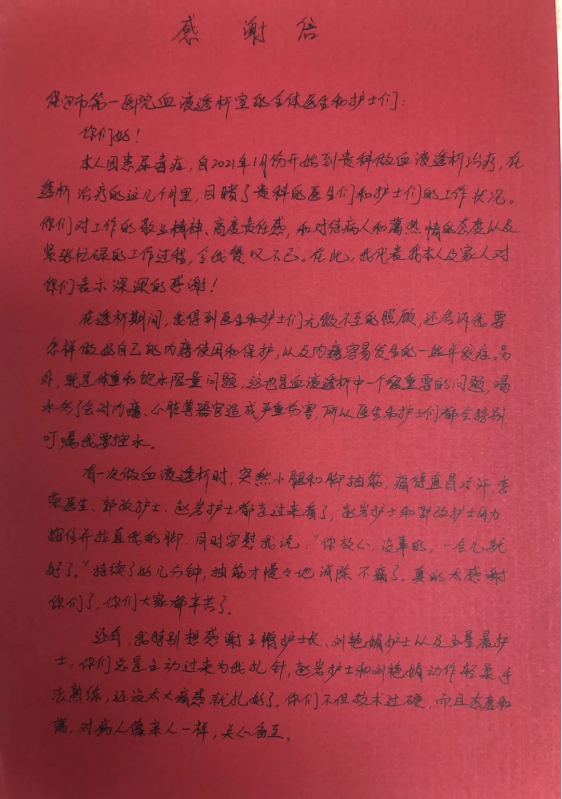 感 谢 信
保定市第一医院血液透析室的全体医生和护士们:
你们好!
本人因患尿毒症,自2021年1月份开始到贵科做血液透析治疗,在
透析治疗的这几个月里,目睹了贵科的医生们和护士们的工作状况。
你们对工作的敬业精神、高度责任感,和对待病人和蔼热情的态度以及
紧张忙碌的工作过程,令我赞叹不已。在此,我代表我本人及家人对
你们表示深深的感谢!
在透析期间,我得到医生和护士们无微不至的照顾,还告诉我要
怎样做好自己的内瘘使用和保护,以及内瘘容易发生的一些并发症。另
外,就是体重和饮水限量问题,这也是血液透析中一个很重要的问题,喝
水多了会对内瘘、心脏等器官造成严重伤害,所以医生和护士们都会特别
叮嘱我要控水。
有一次做血液透析时,突然小腿和脚抽筋,痛得直冒冷汗,
荣医生、郭改护士、赵岩护士都赶过来看了,赵岩护士和郭改护士用力
按住并拉直我的脚,同时安慰我说:“你放心,没事的,一会儿就
好了。”持续了好几分钟,抽筋才慢々地消除不痛了。真的太感谢
你们了,你们大家都辛苦了。
还有,我特别想感谢王 护士长、刘艳娟护士以及王星晨护
士,你们总是主动过来为我扎针,赵岩护士和刘艳娟动作轻柔手
法熟练,还没太大痛感就扎好了。你们不但技术过硬,而且态度和
蔼,对病人像亲人一样,关心备至。